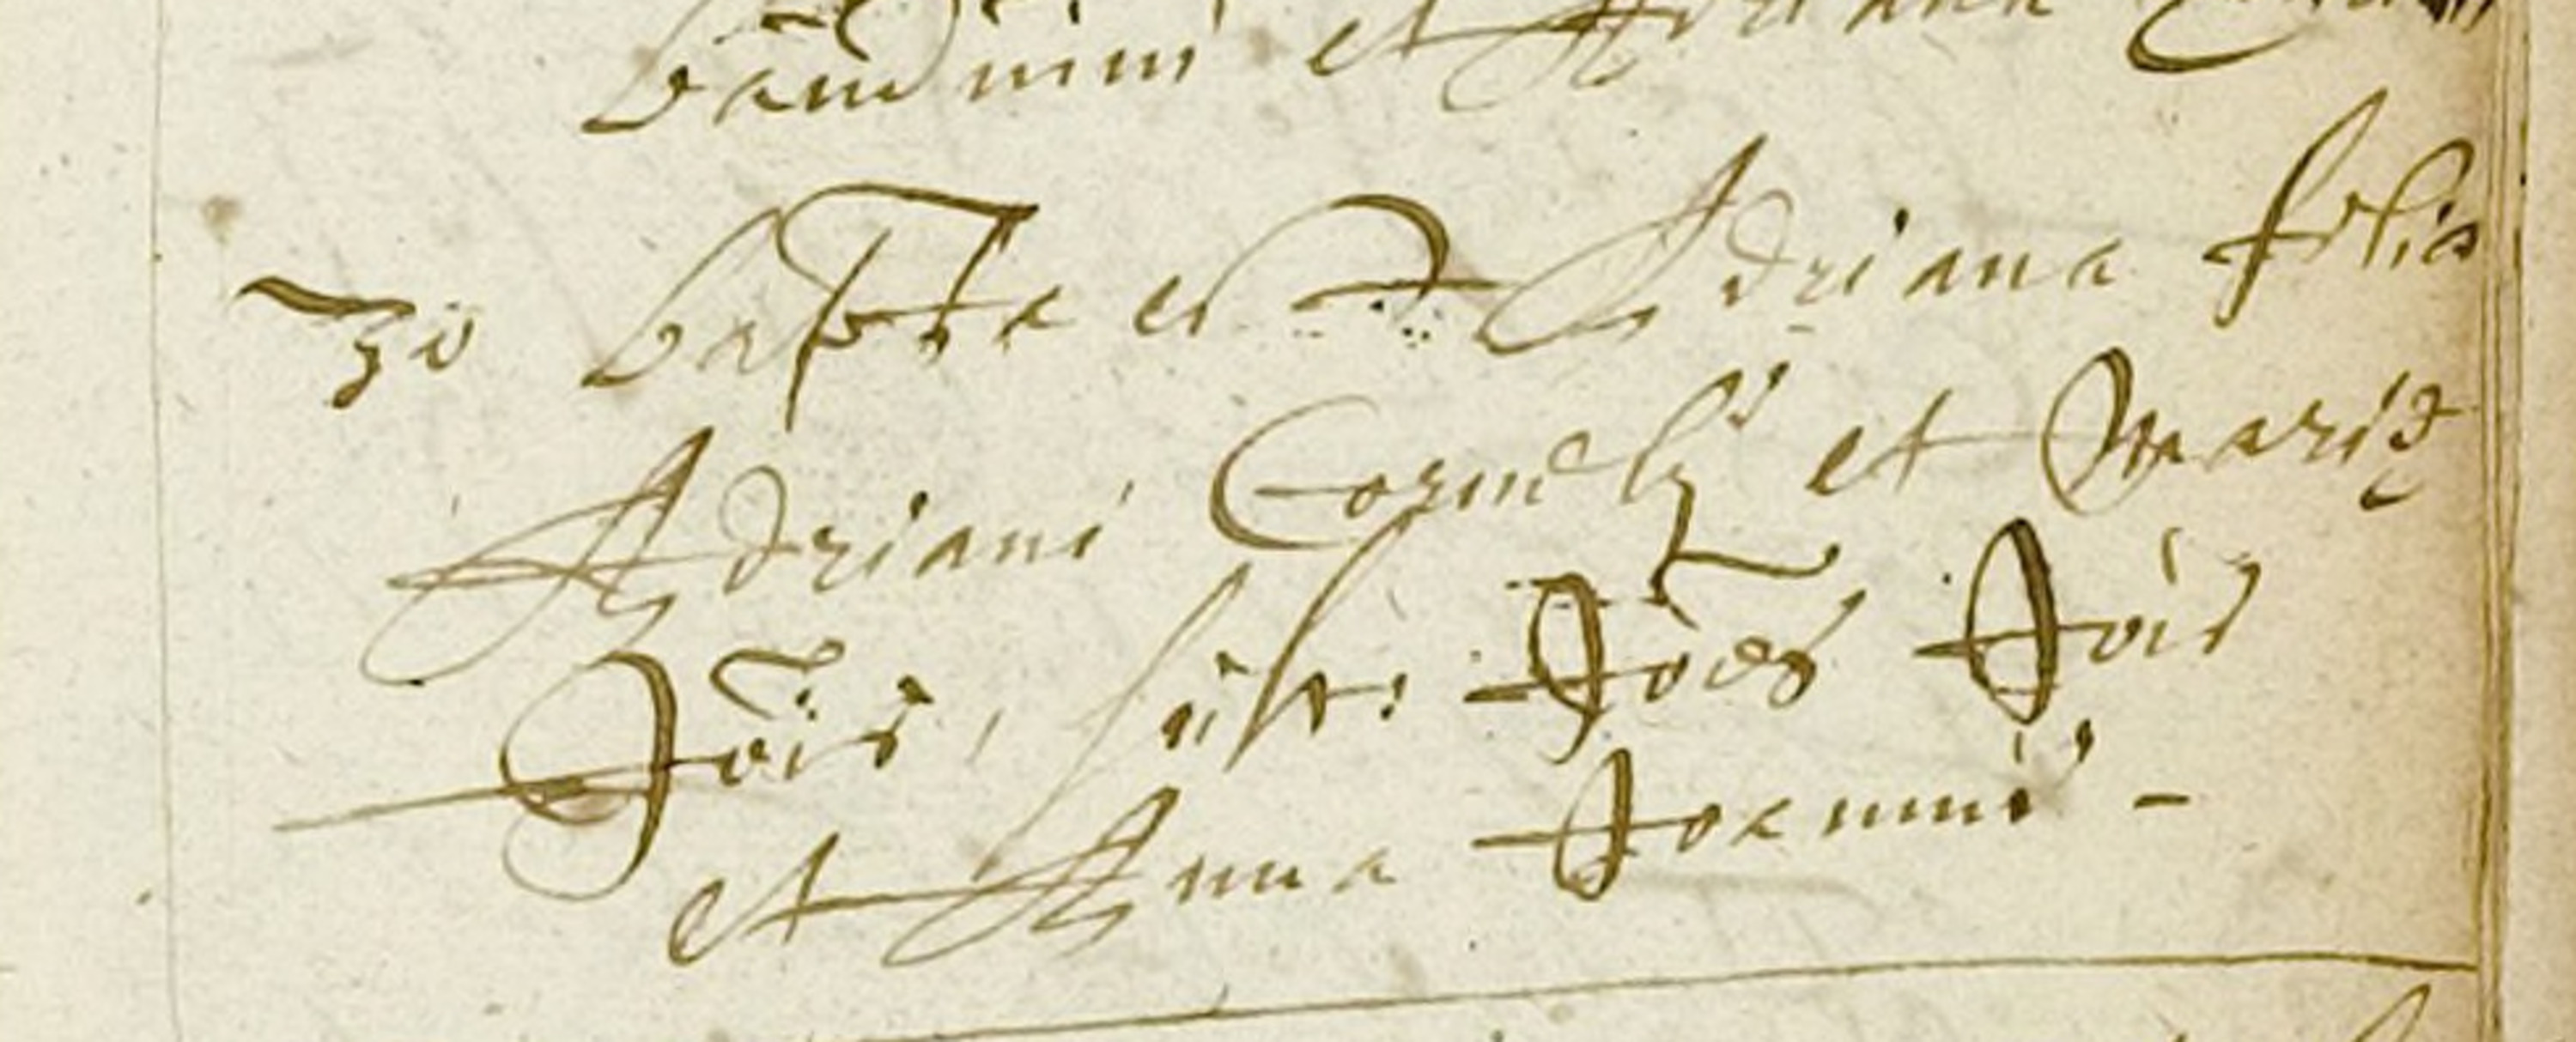 Bauduini et Adriana
30 baptta est Adriana filia
Adriani Cornelij et Mariæ
Jois, susc: Joes Jois
et Anna Joannis -